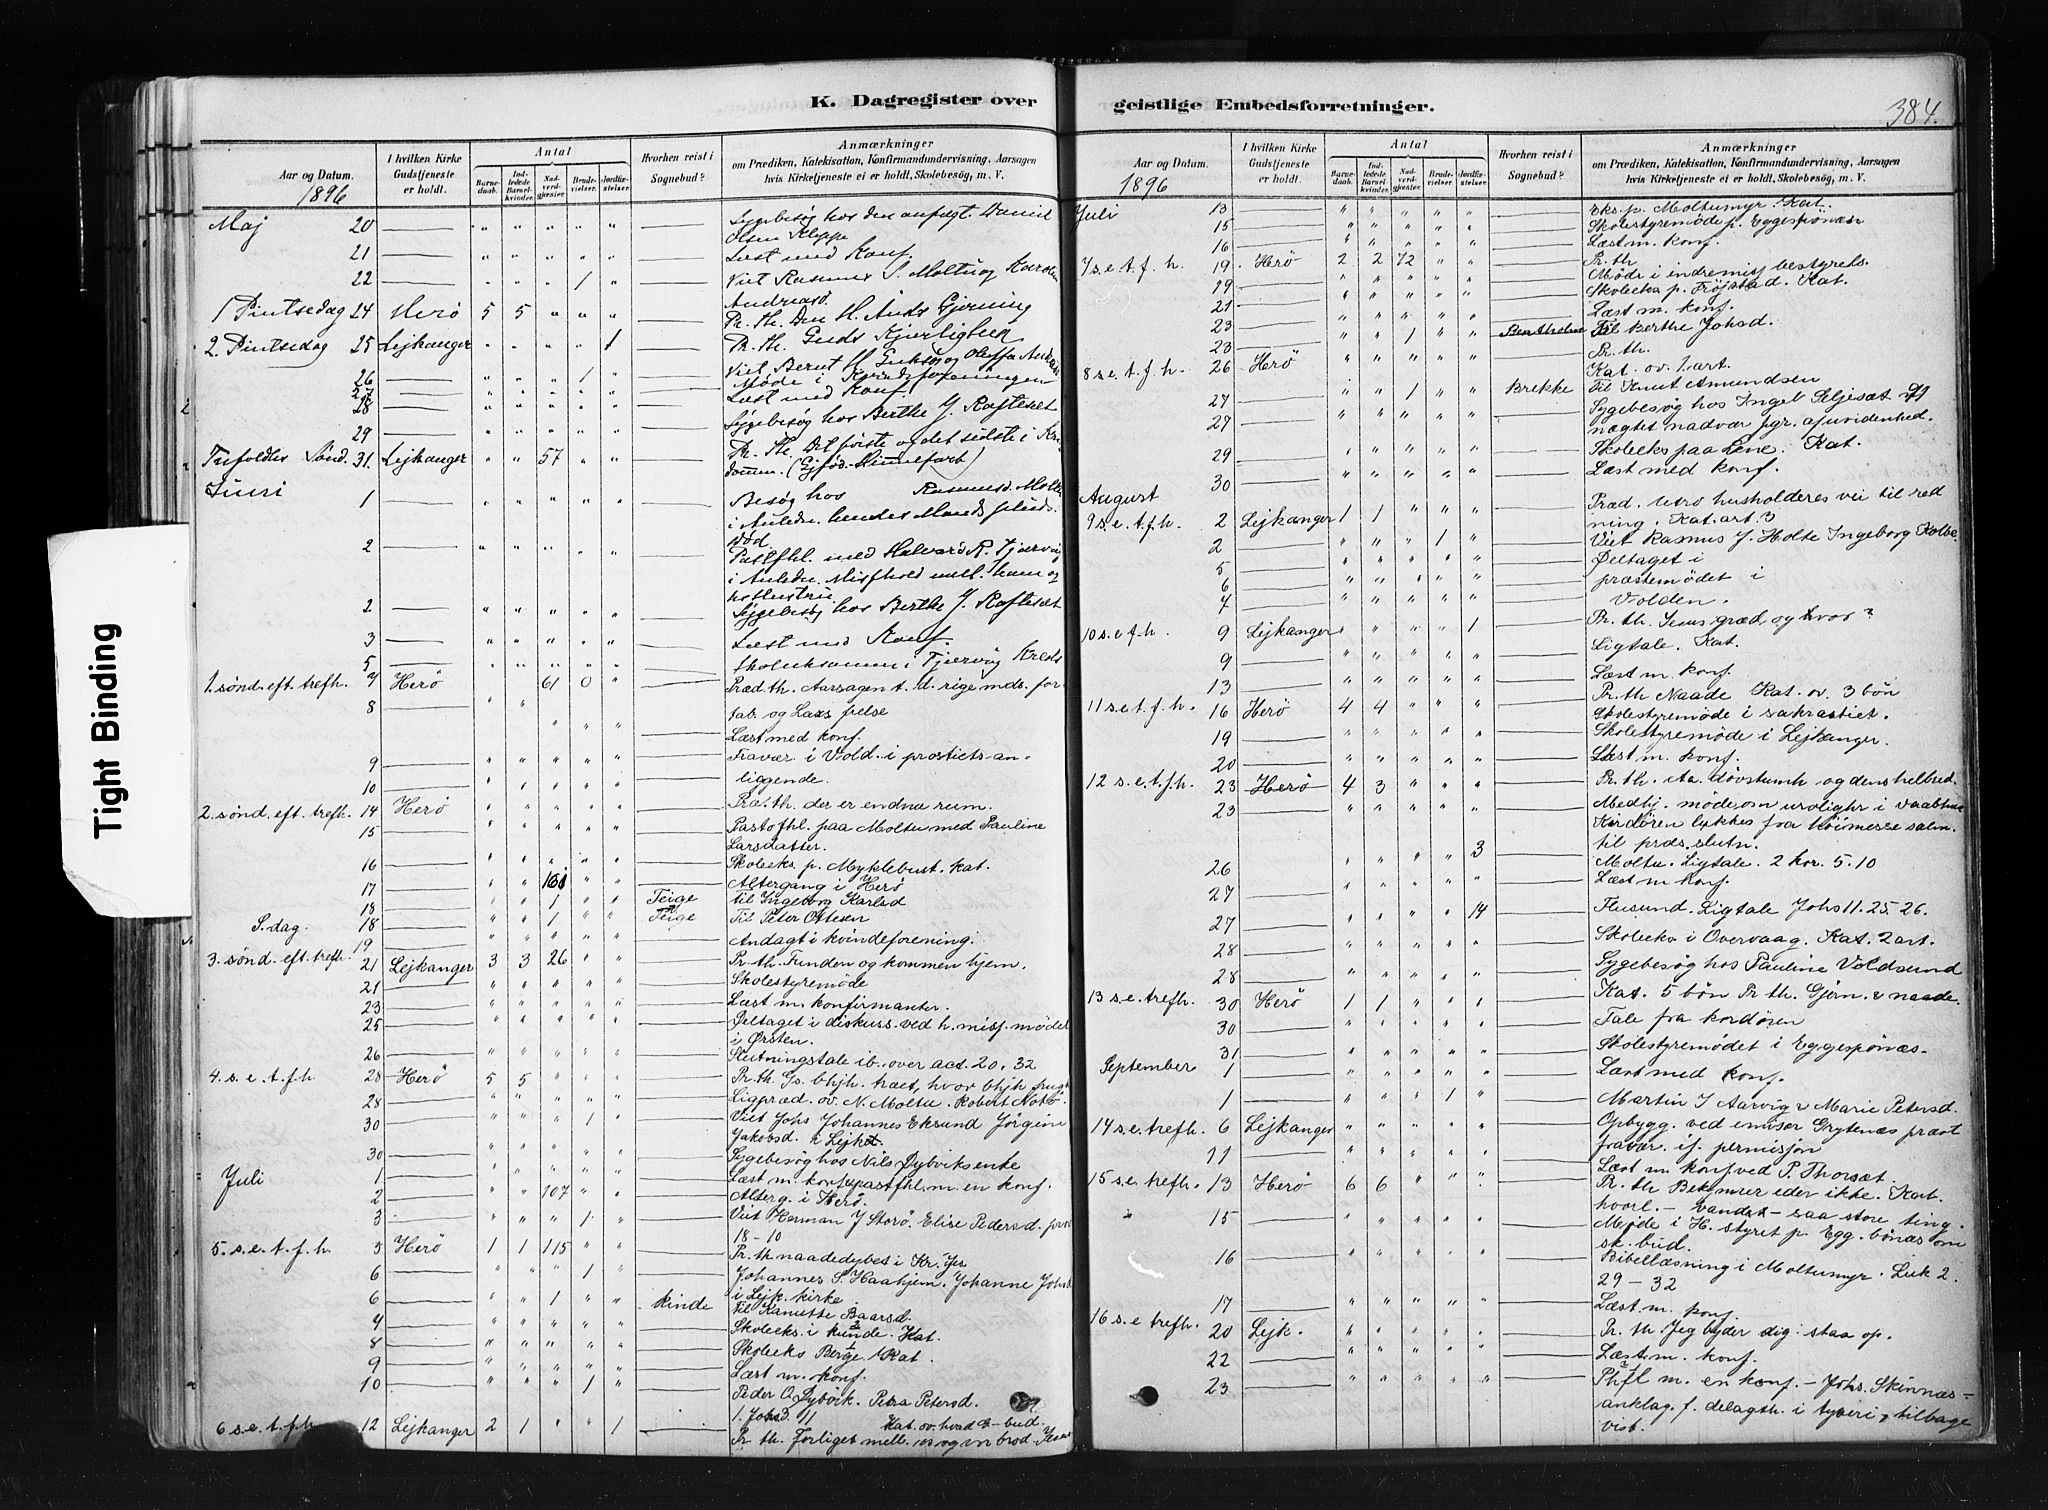 K. Dagregister over
Aar og Datum.
1896
I hvilken Kirke Gudstjeneste er holdt.
Antal
Barnedaab.
Indledede Barselkvinder.
Nadverdgjester.
Brudevielser.
Jordfæstelser.
Hvorhen reist i Sognebud?
Anmærkninger
om Prædiken, Katekisation, Konfirmandundervisning, Aarsagen
hvis Kirketjeneste ei er holdt, Skolebesøg, m. V.
Maj 20 Sygebesøg hos den anfægt. Daniel
Olsen Kleppe
21 Læst med Konf.
22 1 Viet Rasmus S. Moltu og Karoline
Andreasd.
1 Pintsedag 24 Herö 5 5 Pr. th. Den H. Aands Gjerning
2. Pintsedag 25 Lejkanger 1 Pr. th. Guds Kjerlighed
26 1 Viet Bernt H.
27 Møde i Kvindeforeningen
28 Læst med Konf.
29 Sygebesøg hos Berthe J. Rafteset
Trefoldhs Sønd. 31. Lejkanger 57 Pr. Th. Det første og det sidste i Kris
dommen. (Gjføds. Himmelfart)
Juni 1 Besøg hos Rasmusd. Moltu
i Anledn. hendes Mands
död
2 med Halvard R. Tjærvåg
i Anledn. Misfhold mell. ham og
Hustru
2 Sygebesøg hos Berthe J. Rafteset
3 Læst med Konf.
5 Skoleeksamen i Tjærvåg Kreds
1. sønd. eft. trefh. 7 Herö 61 0 Præd. th. Aarsagen t. d. rige mds. for-
tab. og Lazs frelse
8 Læst med konf.
9 Fravær i Vold. i prostiets an-
liggende.
10
2. sønd. eft. trefh. 14 Herö Præ. th. der er endnu rum.
15 Pastofhl. paa Moltu med Pauline
Larsdatter.
16 Skoleeks. p. Myklebust. kat.
17 Altergang i Herö
18 1 Teige Til Ingeborg Karlsd
S. dag. 18 1 Teige Til Peter Ottesen
19 Andagt i kvindeforening.
3. sønd. eft. trefh. 21 Lejkanger 3 3 26 Pr. th. Funden og kommen hjem.
21 Skolestyremøde
23 Læst m. konfirmanter.
25 Deltaget i diskuss. ved h. misj. mødet
i Ørsten.
26 Slutningstale ib. over act. 20. 32
4. s. e. t. f. h 28 Herö 5 5 Pr. th. Gs. bhjh. træt, hvor bhjh frugt
28 Ligpræd. ov. N. Moltu. Robert Notö.
30 1 Viet Johs Johannes Eksund Jörgine
Jakobsd. i Lejk
30 Sygebesøg hos Nils Dybviks enke
Juli 1 Læst m. konf. pastfhl. m. en konf.
2 107 Alterg. i Herö.
3 1 Viet Herman J Storö. Elise Pedersd.
18-10
5. s. e. t. f. h. 5 Herö 1 1 115 Pr. th. naadedybet i Kr. Js
6 1 Johannes S. Haahjem. Johanne Johsd
i Lejk. kirke
6 1 kinde Til Kanutte Baarsd.
7 Skoleeks. i kinde. Kat.
8 Skoleeks Berge Kat.
9 Læst m. konf.
10 1 Peder O. Dybvik. Petra Petersd.
1. Johsd. 11 Kat. ov. hvad G- bud.
6 s. e. t. f. h 12 Lejkanger 2 1 1 Pr. th. Forliget mell. os og vor brod.
geistlige Embedsforretninger.
384.
Aar og Datum.
1896
I hvilken Kirke Gudstjeneste er holdt.
Antal
Barnedaab.
Indledede Barselkvinder.
Nadverdgjester.
Brudevielser.
Jordfæstelser.
Hvorhen reist i Sognebud?
Anmærkninger
om Prædiken, Katekisation, Konfirmandundervisning, Aarsagen
hvis Kirketjeneste ei er holdt, Skolebesøg, m. V.
Juli 13 Eks. p. Moltumyr. Kat.
15 Skolestyremöde p. Eggesbönæs
16 Læst m. konf.
7 s. e. t. f. h. 19 Herö 2 2 72 Pr. th
19 Møde i indremisj bestyrels.
21 Skoleeks p. Frøjstad. Kat.
23 Læst m. konf.
23 1 Til Berthe Johsd.
8 s. e. t. f. h. 26 Herö Pr. th.
Kat. ov. 1. art.
27 1 Brekke Til Knut Amundsen
27 Sygebesøg hos Ingeb Seljesæt
nægtet nadvær pgr. af uvidenhed.
29 Skoleeks paa Lene. Kat.
30 Læst med konf.
August Præd. Utro husholderes vei til red
9 s. e. t. f. h. 2 Lejkanger 1 1 ning. Kat. art. 3
2 1 Viet Rasmus J. Holte Ingeborg Kolbe
5 Deltaget i
6 præstemödet i
7 Volden.
10 s. e f. h. 9 Lejkanger 1 Pr. th. Jesus græd og hvor?
9 Ligtale. Kat.
13 Læst m. konf.
11 s. e. t. f. h. 16 Herö 4 4 Pr. th Naade Kat. ov. 3 bön
Skolestyremøde i sakrastiet.
19 Skolestyremøde i Lejkanger.
20 Læst m. konf.
12 s. e. t. f. h. 23 Herö 4 3 Pr. th. Aa. døvstumh og dens helbred.
23 Medhj. møde, om urolighr i vaabhus
Kirdören lykkes fra höimesse salm.
til præs. slutn.
26 3 Moltu. Ligtale. 2 kor. 5. 10
27 Læst m konf.
27 14 Flusund. Ligtale Johs 11. 25. 26.
28 Skoleeks i Overvaag. Kat. 2 art.
28 Sygebesøg hos Pauline Voldsund
13 s. e. trefh. 30 Herö 1 1 Kat. 5 bön Pr th. Gjörn. & naade.
30 Tale fra kordören
31 Skolestyremødet i Eggesbönæs.
September 1 Læst med konf.
1 1 Martin J Aarvig & Marie Petersd.
14 s. e. trefh. 6 Lejkanger Opbygg. ved emisær Grytenæs præst
fravær. if. permisjon
11 Læst m konf ved P. Thorsæt.
15 s. e. trefh. 13 Herö 6 6 Pr. th Bekymrer eder ikke. Kat.
hvorl. - vandet - saa store ting.
15 Møde i H. styret p. Egg. bönæs om
sk. bud.
16 Bibellæsning i Moltumyr. Luk 2.
29-32
17 Læst m. konf
16 s. e trefh. 20 Lejk. Pr. th Jeg byder dig: staa op.
22 Læst m. konf.
23 Phfl m. en konf. - Johs. Skinnæs -
anklag. f. delagth. i tyveri, tilbage
vist.
Tight Binding